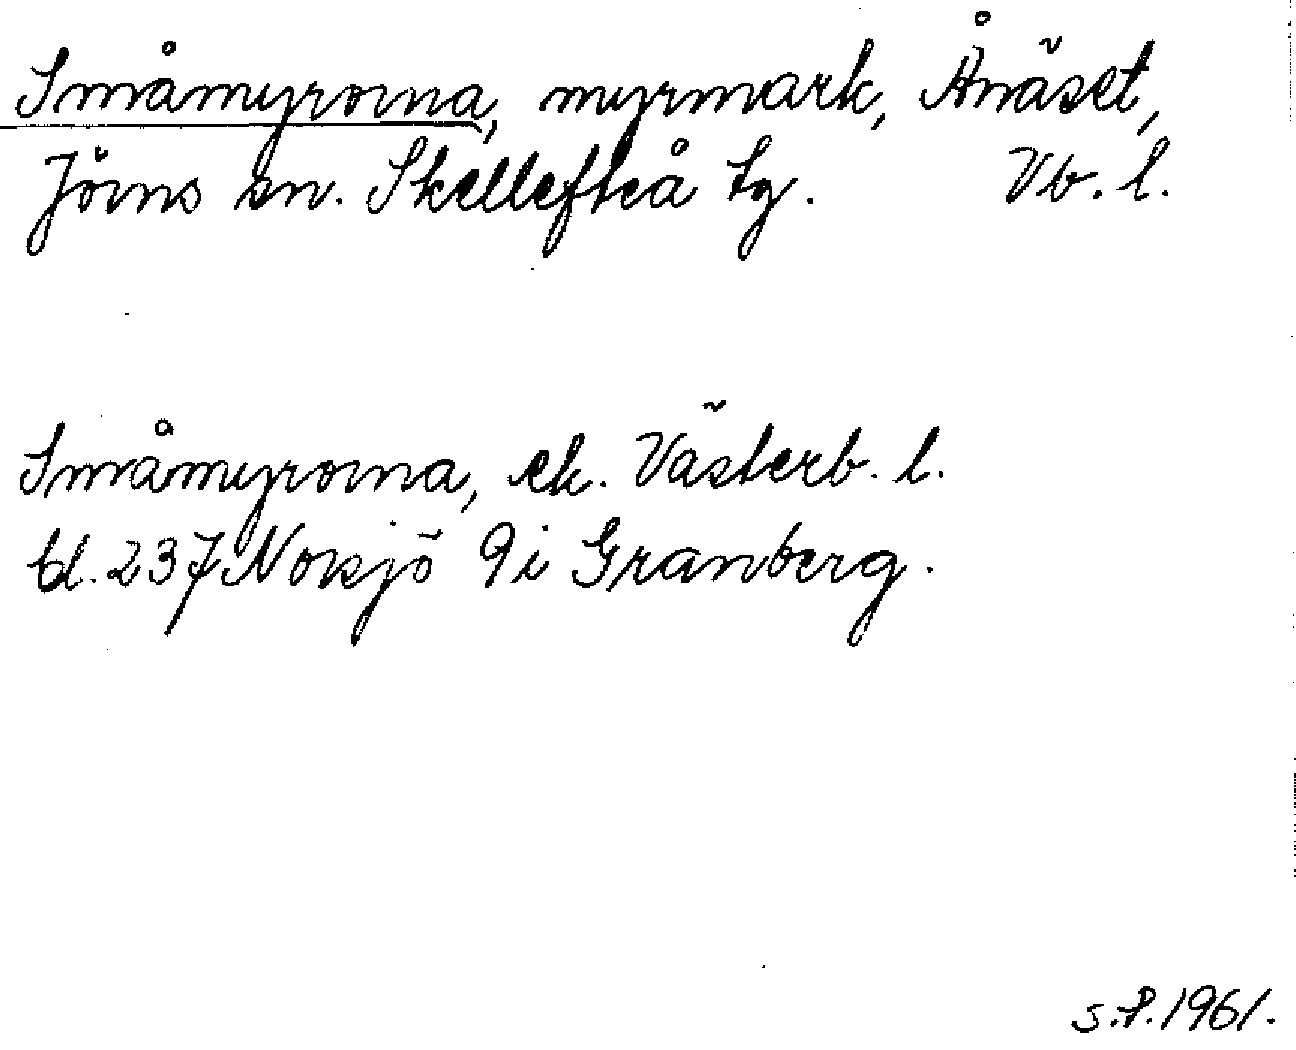 Småmyrorna, myrmark, Ånäset,
Jörns sn. Skellefteå tg. Vb. l.
Småmyrorna, ek. Västerb. l.
bl. 237 Norsjö 9i Granberg.
S.P. 1961.